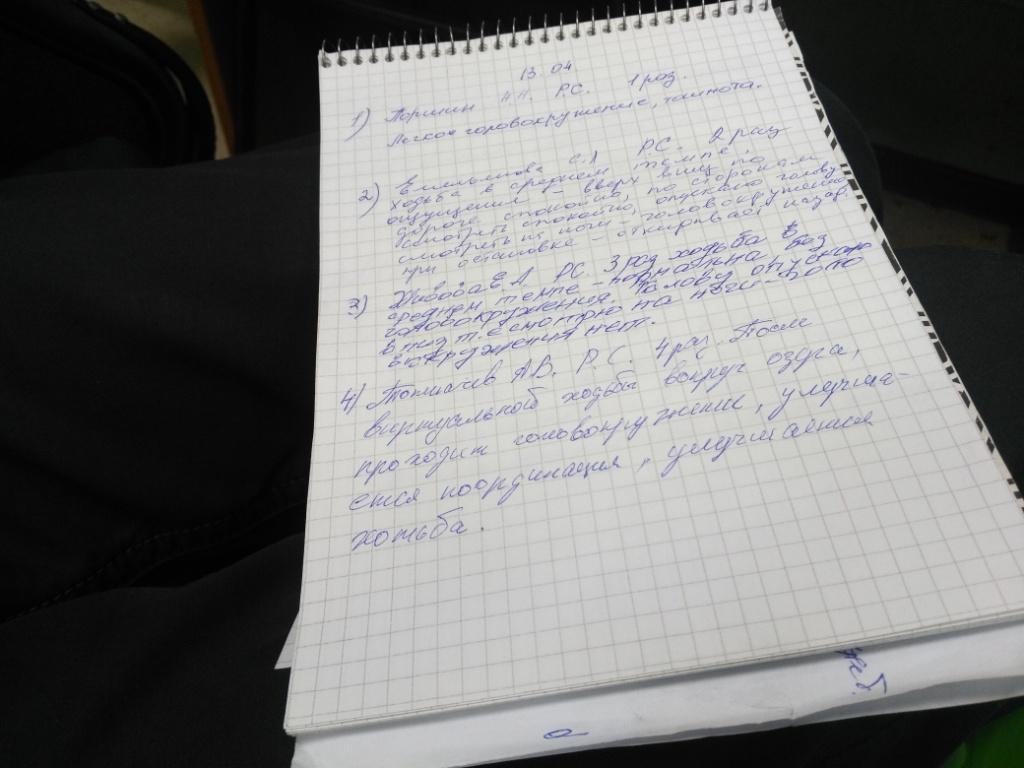 13.04
1) Пормин Н.Н. Р.С. 1 раз.
Легкое головокружение, тошнота.
2) С.А Р.С. 2 раз
Ходьба в среднем темпе.
ощущения - вверх вниз по
дороге спокойно, по сторонам
смотреть спокойно, опускаю голову
смотреть на ноги головокружение
при остановке - откидывает назад.
3) Е.А. РС. 3 раз ходьба в
среднем темпе - нормальна без
головокружения. Голову опускаю
вниз т.е смотрю на ноги - голо
вокружения нет.
4) Толмачев А.В. Р.С. 4 раз. После
виртуальной ходьбы вокруг озера,
проходит головокружение, улучша-
ется координация, улучшается
хотьба.